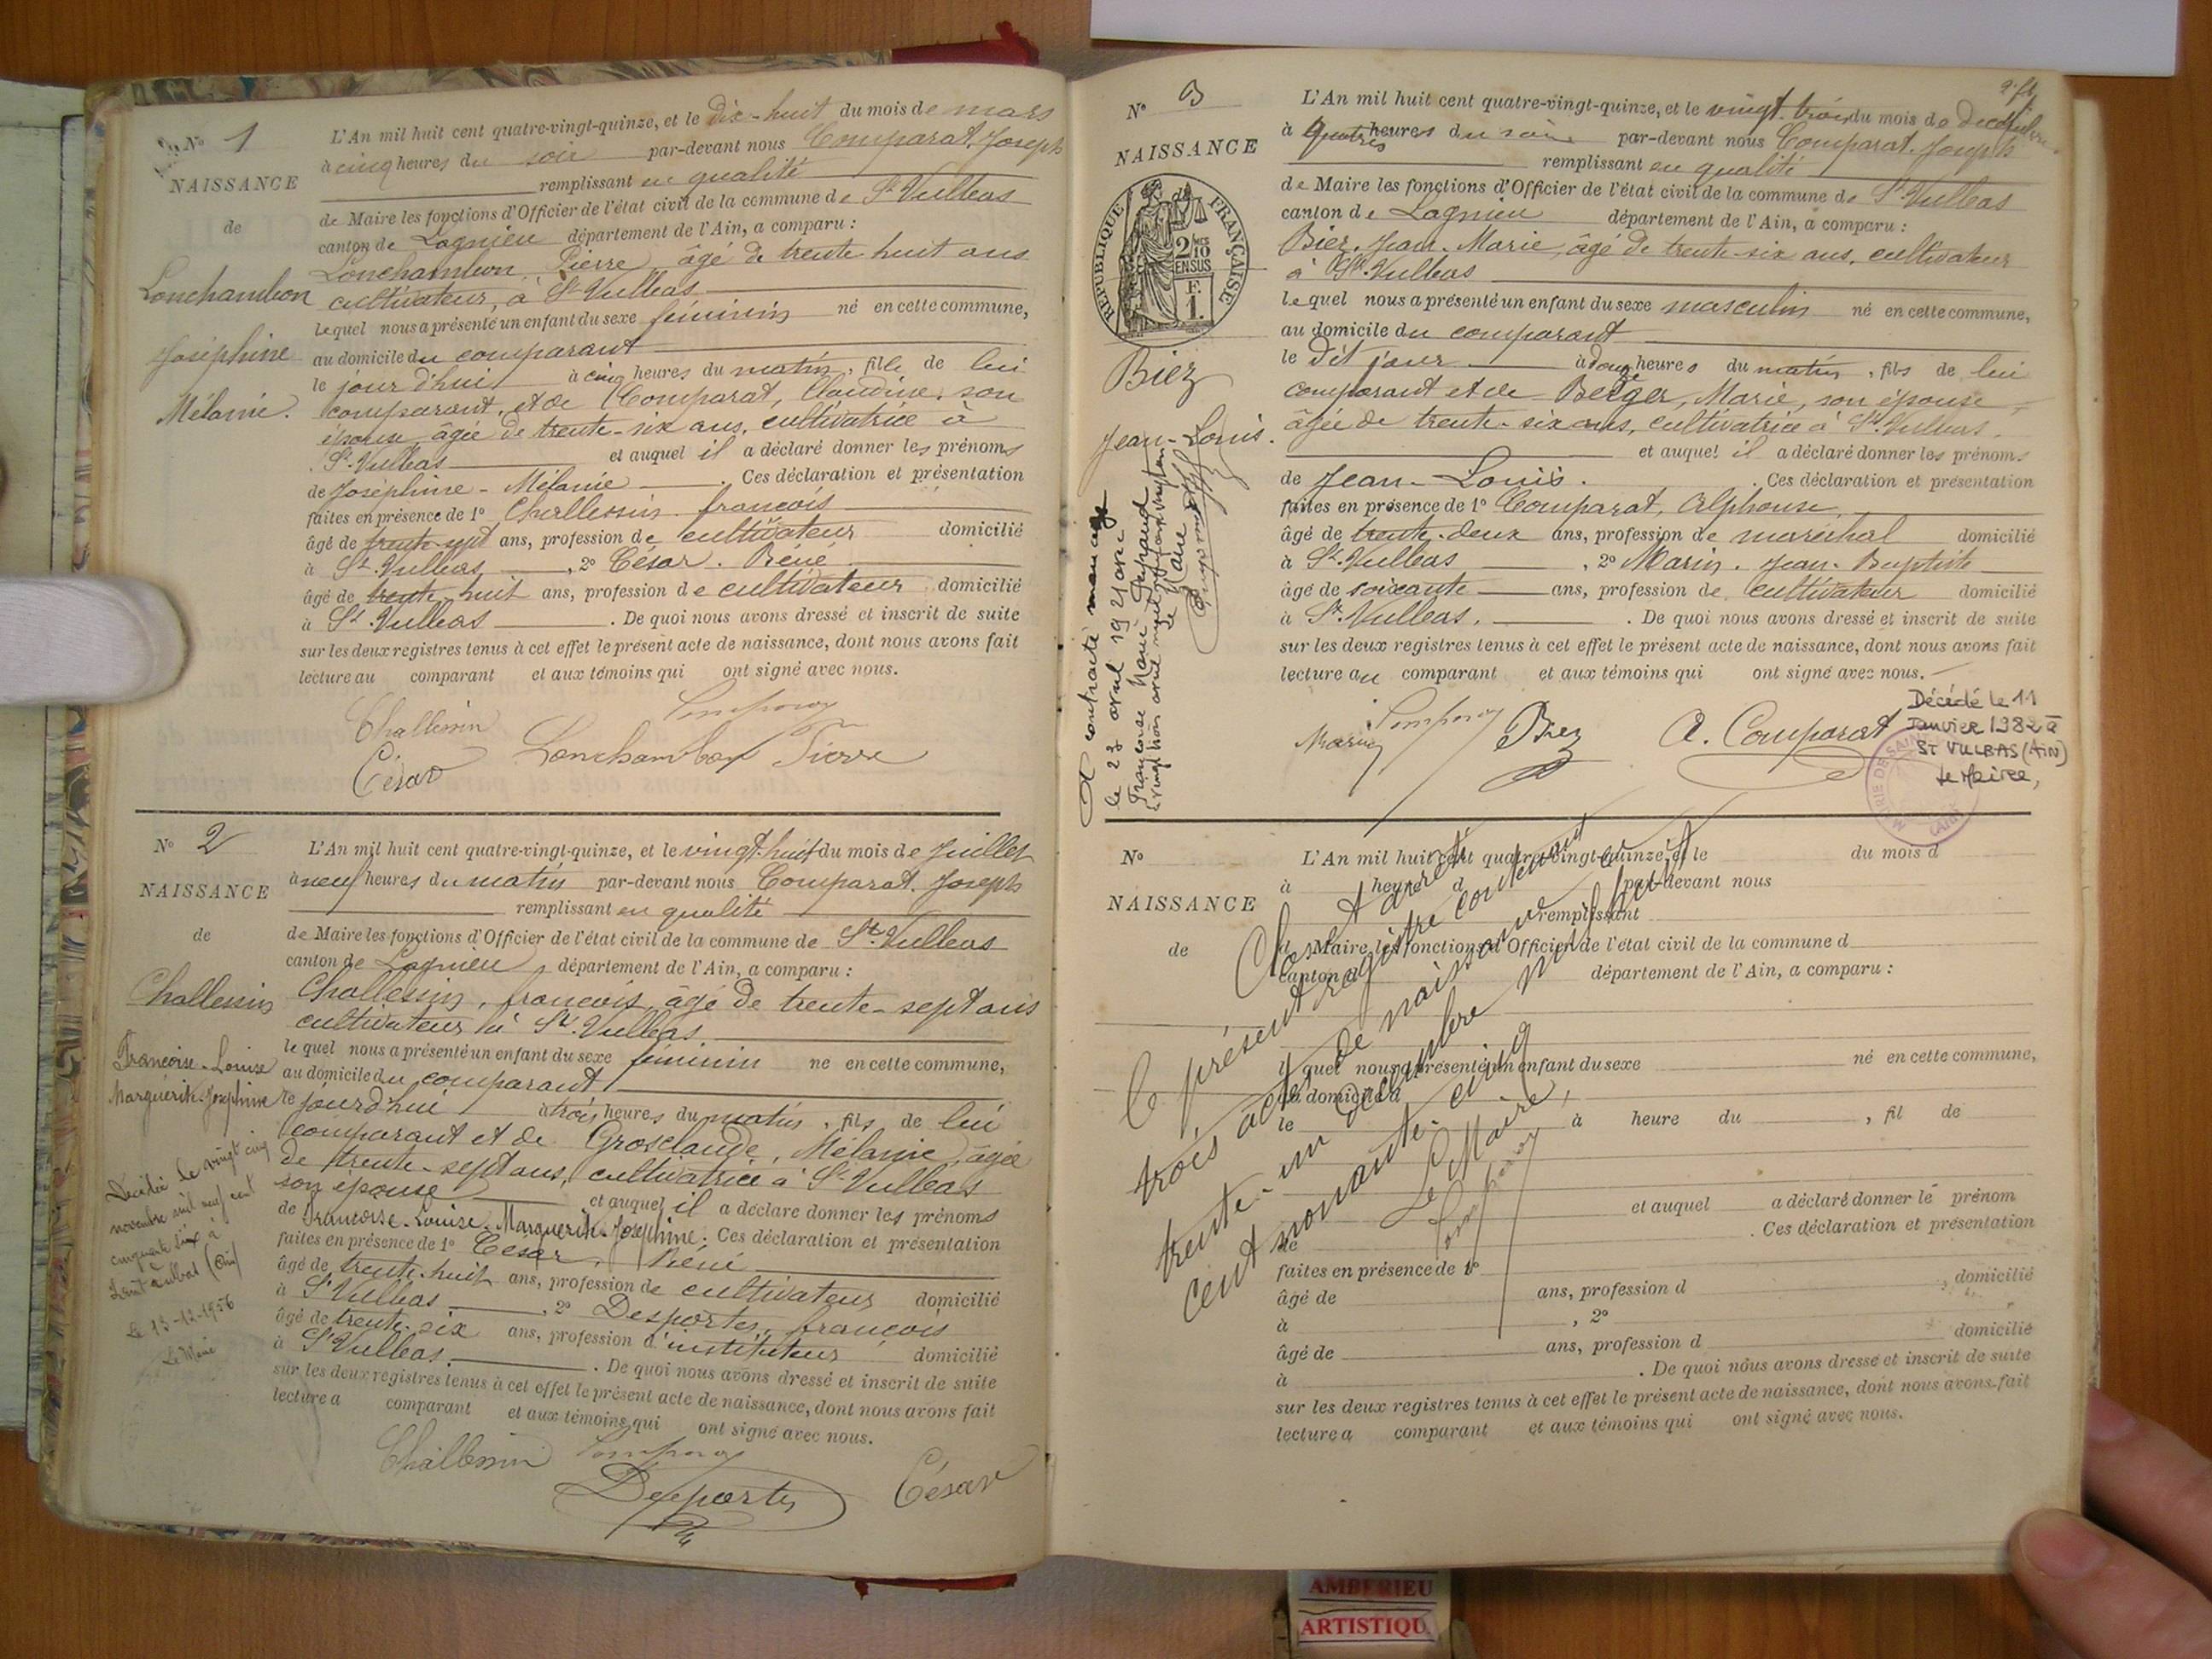 No 1
NAISSANCE
de
Lonchambon
Joséphine
Mélanie.
L'An mil huit cent quatre-vingt-quinze, et le dix-huit du mois de mars
à cinq heures du soir par-devant nous Comparat, Joseph
remplissant en qualité
de Maire les fonctions d'Officier de l'état civil de la commune de St Vulbas
canton de Lagnieu département de l'Ain, a comparu :
Lonchambon, Pierre, âgé de trente huit ans
cultivateur, à St Vulbas
lequel nous a présenté un enfant du sexe féminin né en cette commune,
au domicile du comparant
le jour d'hui à cinq heures du matin, fille de lui
comparant, et de Comparat, Claudine, son
épouse, âgée de trente-six ans, cultivatrice à
St. Vulbas et auquel il a déclaré donner les prénoms
de Joséphine - Mélanie . Ces déclaration et présentation
faites en présence de 1o Challessin françois
âgé de trente-sept ans, profession de cultivateur domicilié
à St. Vulbas , 2o César. Réné
âgé de trente-huit ans, profession de cultivateur domicilié
à St. Vulbas . De quoi nous avons dressé et inscrit de suite
sur les deux registres tenus à cet effet le présent acte de naissance, dont nous avons fait
lecture au comparant et aux témoins qui ont signé avec nous.
Challessin
César Lonchambon Pierre
No 2
NAISSANCE
de
Challessin
Françoise-Louise
Marguerite-Joséphine
Décédée le vingt cinq
novembre mil neuf cent
cinquante six à
Saint Vulbas (Ain)
Le 13-12-1956
Le Maire
L'An mil huit cent quatre-vingt-quinze, et le vingt-huit du mois de Juillet
à neuf heures du matin par-devant nous Comparat, Joseph
remplissant en qualité
de Maire les fonctions d'Officier de l'état civil de la commune de St. Vulbas
canton de Lagnieu département de l'Ain, a comparu :
Challessin, françois, âgé de trente-sept ans
cultivateur à St. Vulbas
lequel nous a présenté un enfant du sexe féminin né en cette commune,
au domicile du comparant
le jourd'hui à trois heures du matin, fils de lui
comparant et de Grosclaude, Mélanie, âgée
de trente-sept ans, cultivatrice à St Vulbas
son épouse et auquel il a déclaré donner les prénoms
de Françoise-Louise-Marguerite-Joséphine. Ces déclaration et présentation
faites en présence de 1o César, Réné
âgé de trente-huit ans, profession de cultivateur domicilié
à St Vulbas , 2o Desportes, françois
âgé de trente-six ans, profession d'instituteur domicilié
à St Vulbas. . De quoi nous avons dressé et inscrit de suite
sur les deux registres tenus à cet effet le présent acte de naissance, dont nous avons fait
lecture a comparant et aux témoins qui ont signé avec nous.
Challessin
Desportes César
No 3
NAISSANCE
RÉPUBLIQUE FRANÇAISE
2/10
EN SUS
F.
1.
Biez
Jean-Louis.
A contracté mariage
le 23 avril 1921 avec
Françoise Marie
Le Maire
L'An mil huit cent quatre-vingt-quinze, et le vingt-trois du mois de décembre
à quatre heures du soir par-devant nous Comparat, Joseph
remplissant en qualité
de Maire les fonctions d'Officier de l'état civil de la commune de St. Vulbas
canton de Lagnieu département de l'Ain, a comparu :
Biez, Jean-Marie, âgé de trente-six ans, cultivateur
à St. Vulbas
lequel nous a présenté un enfant du sexe masculin né en cette commune,
au domicile du comparant
le dit jour à douze heures du matin, fils de lui
comparant et de Berger, Marie, son épouse,
âgée de trente-six ans, cultivatrice à St. Vulbas.
et auquel il a déclaré donner les prénoms
de Jean-Louis. . Ces déclaration et présentation
faites en présence de 1o Comparat, Alphonse,
âgé de trente-deux ans, profession de maréchal domicilié
à St. Vulbas , 2o Marin, Jean-Baptiste
âgé de soixante ans, profession de cultivateur domicilié
à St. Vulbas. . De quoi nous avons dressé et inscrit de suite
sur les deux registres tenus à cet effet le présent acte de naissance, dont nous avons fait
lecture au comparant et aux témoins qui ont signé avec nous.
Marin Biez A. Comparat
Décédé le 11
Janvier 1982 à
ST VULBAS (AIN)
Le Maire,
No
NAISSANCE
de
L'An mil huit cent quatre-vingt-quinze, et le du mois d
à heure d par-devant nous
remplissant
d Maire les fonctions d'Officier de l'état civil de la commune d
canton d département de l'Ain, a comparu :
l quel nous a présenté un enfant du sexe né en cette commune,
au domicile d
le à heure du , fil de
et auquel a déclaré donner le prénom
de . Ces déclaration et présentation
faites en présence de 1o
âgé de ans, profession d , domicilié
à , 2o
âgé de ans, profession d domicilié
à . De quoi nous avons dressé et inscrit de suite
sur les deux registres tenus à cet effet le présent acte de naissance, dont nous avons fait
lecture a comparant et aux témoins qui ont signé avec nous.
Clos et arrêté
le présent registre contenant
trois actes de naissance
trente-un décembre mil huit
cent nonante-cinq
Le Maire,
AMBERIEU
ARTISTIQU